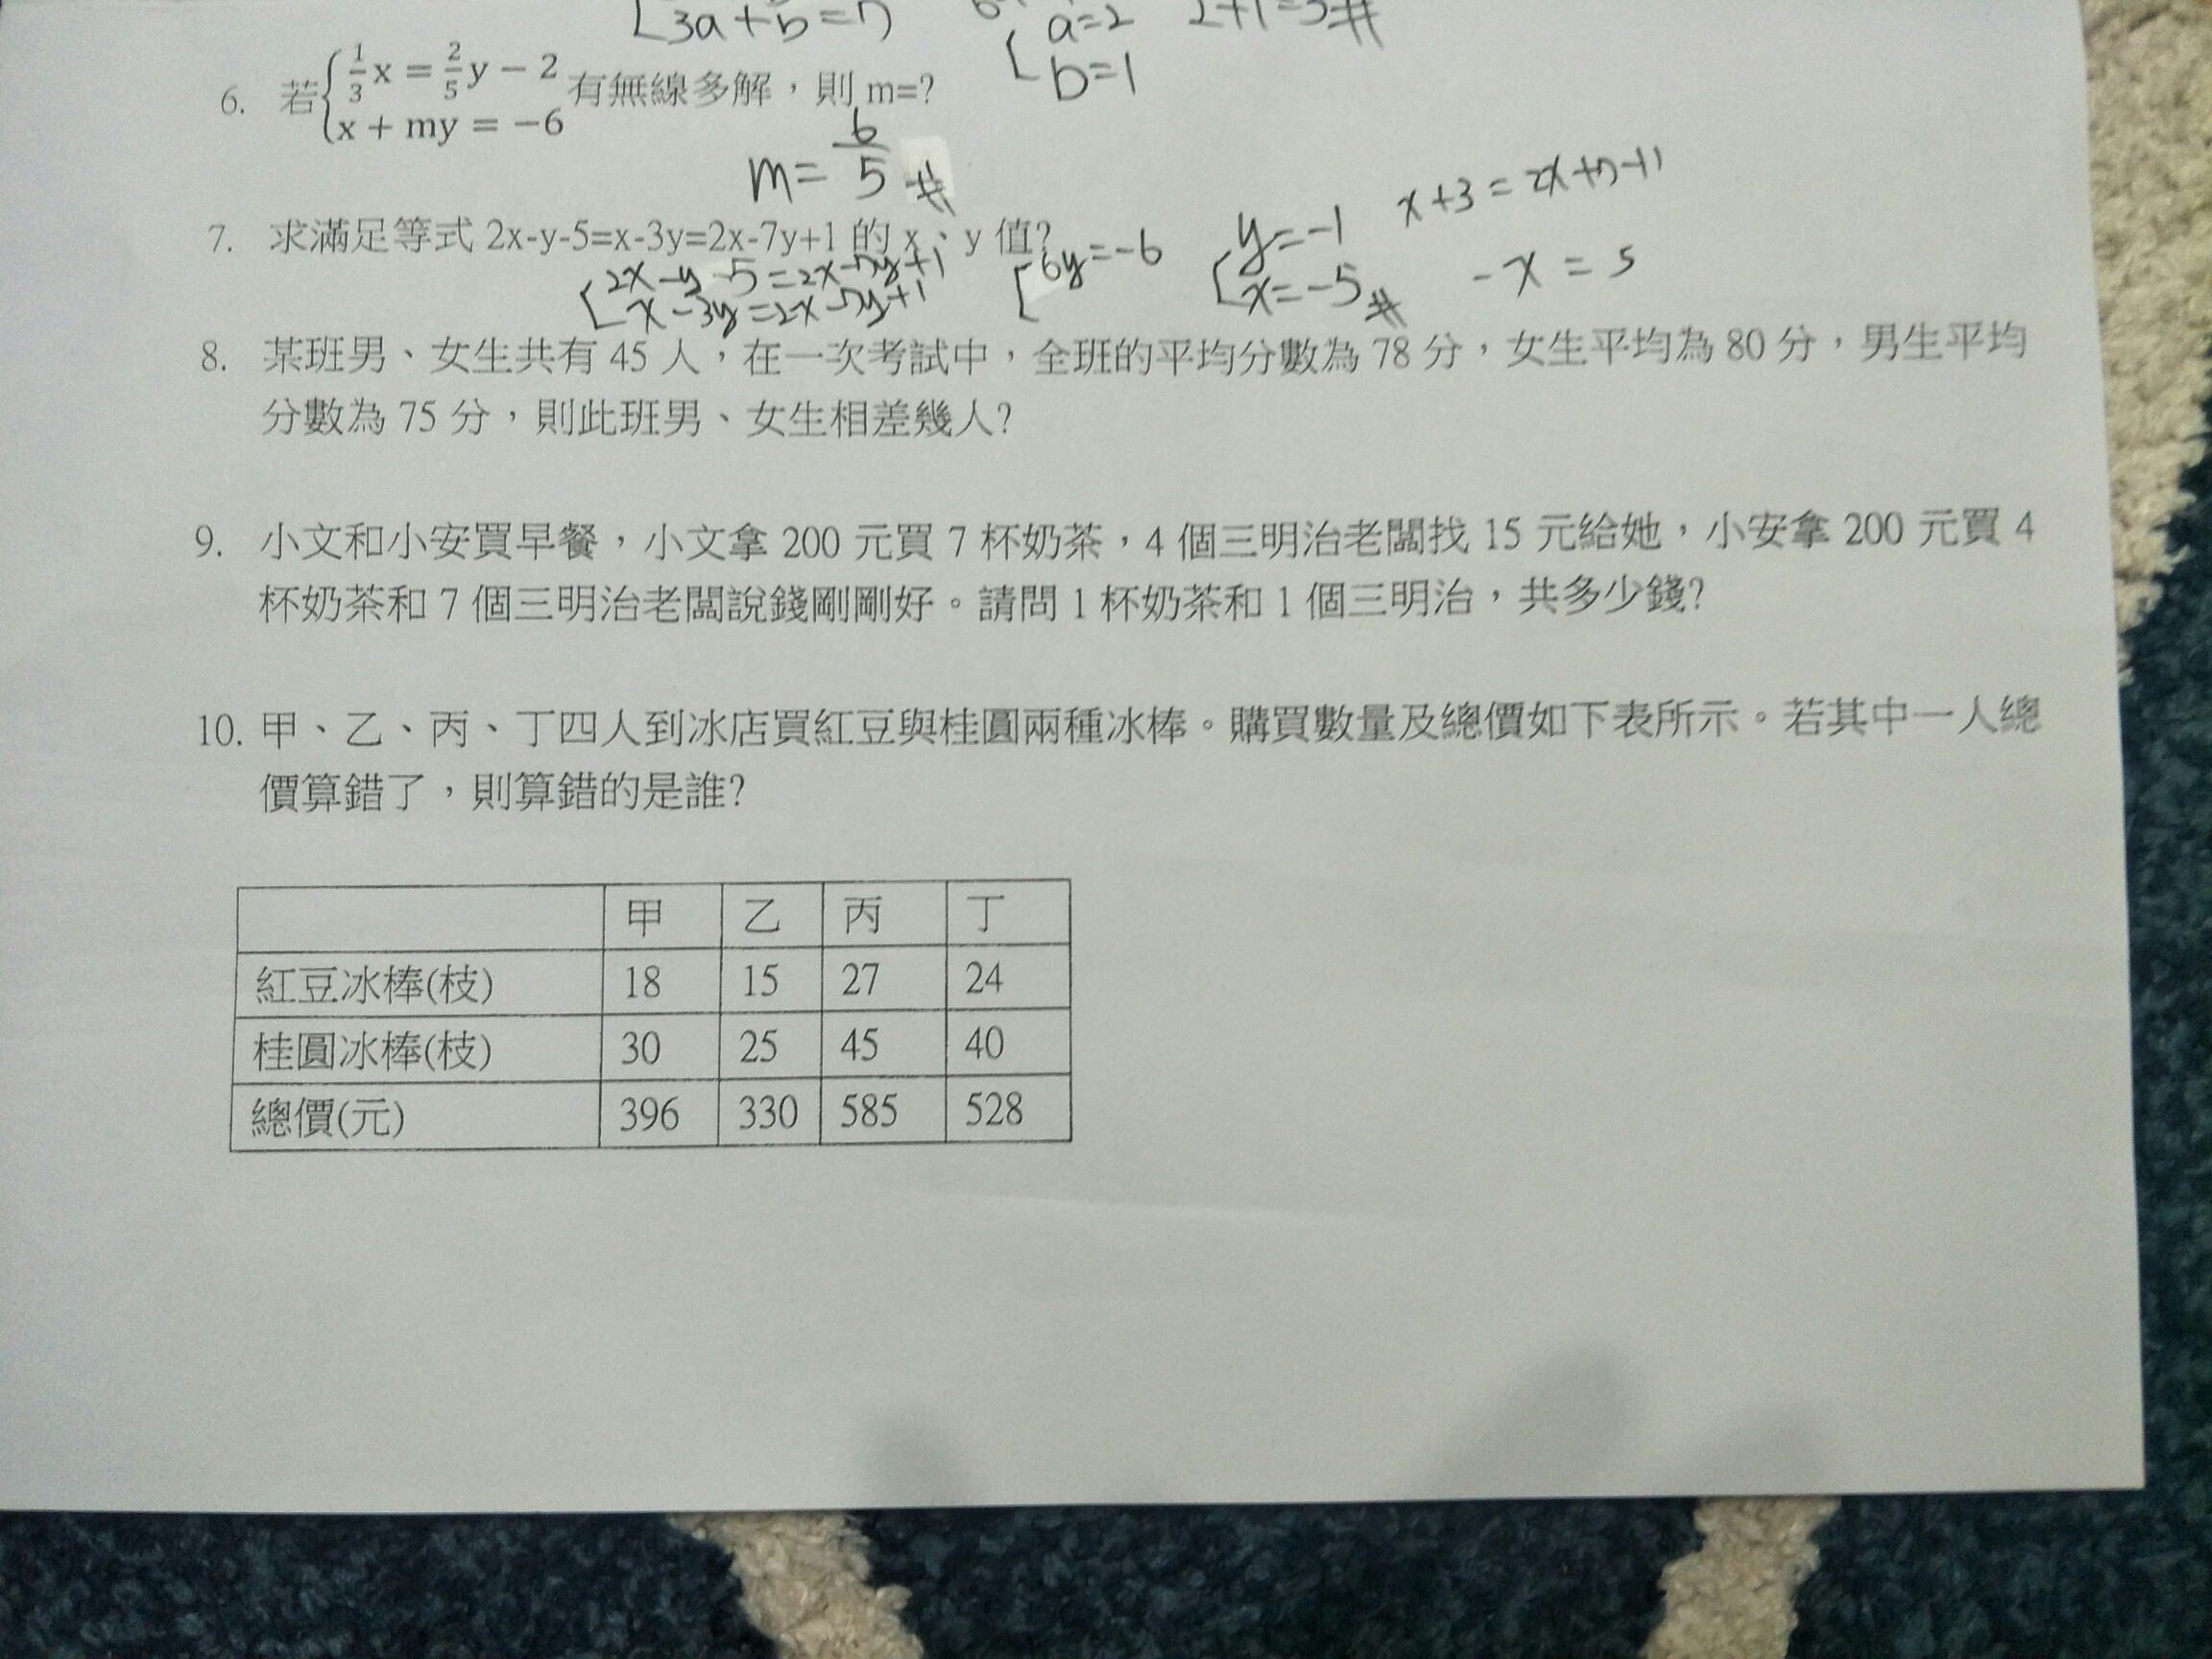 3a+b=7
a=2
b=1
2+1=3#
6. 若{1/3x = 2/5y − 2
x + my = −6 有無線多解，則 m=?
m= 6/5 #
7. 求滿足等式 2x-y-5=x-3y=2x-7y+1 的 x、y 值?
2x-y-5=2x-7y+1
x-3y=2x-7y+1
6y=-6
y=-1
x=-5#
x+3=2x+7+1
-x=5
8. 某班男、女生共有 45 人，在一次考試中，全班的平均分數為 78 分，女生平均為 80 分，男生平均
分數為 75 分，則此班男、女生相差幾人?
9. 小文和小安買早餐，小文拿 200 元買 7 杯奶茶，4 個三明治老闆找 15 元給她，小安拿 200 元買 4
杯奶茶和 7 個三明治老闆說錢剛剛好。請問 1 杯奶茶和 1 個三明治，共多少錢?
10. 甲、乙、丙、丁四人到冰店買紅豆與桂圓兩種冰棒。購買數量及總價如下表所示。若其中一人總
價算錯了，則算錯的是誰?
甲 乙 丙 丁
紅豆冰棒(枝) 18 15 27 24
桂圓冰棒(枝) 30 25 45 40
總價(元) 396 330 585 528